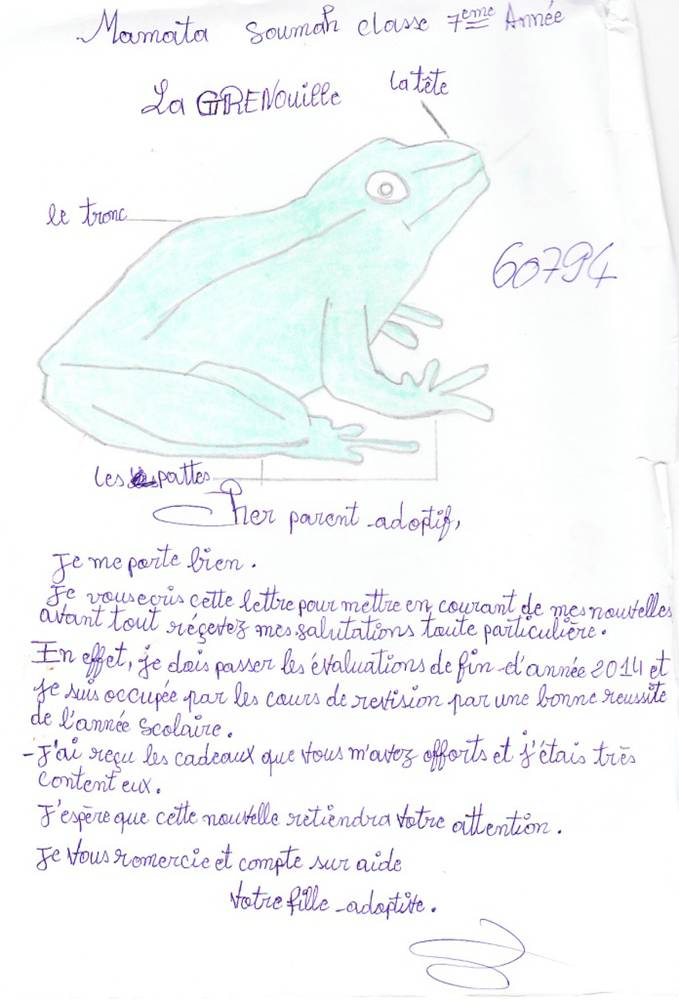 Mamata Soumah classe 7ème Année
La GRENouille
la tête
le tronc
60794
les pattes
Cher parent adoptif,
Je me porte bien.
Je vous ecris cette lettre pour mettre en courant de mes nouvelles
avant tout réçevez mes salutations toute particulière.
En effet, je dois passer les évaluations de fin d'année 2014 et
je suis occupée par les cours de revision par une bonne reussite
de l'année scolaire.
- J'ai reçu les cadeaux que vous m'avez offorts et j'étais très
content eux.
J'espère que cette nouvelle retiendra votre attention.
Je vous romercie et compte sur aide
Votre fille adoptive.